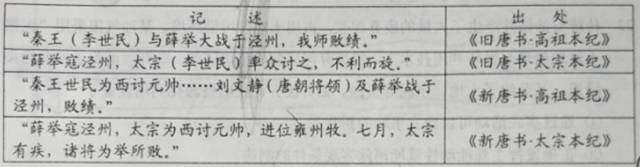 记 述 出 处
“秦王（李世民）与薛举大战于泾州，我师败绩。” 《旧唐书·高祖本纪》
“薛举寇泾州，太宗（李世民）率众讨之，不利而旋。” 《旧唐书·太宗本纪》
“秦王世民为西讨元帅……刘文静（唐朝将领）及薛举战于
泾州，败绩。” 《新唐书·高祖本纪》
“薛举寇泾州，太宗为西讨元帅，进位雍州牧。七月，太宗
有疾，诸将为举所败。” 《新唐书·太宗本纪》